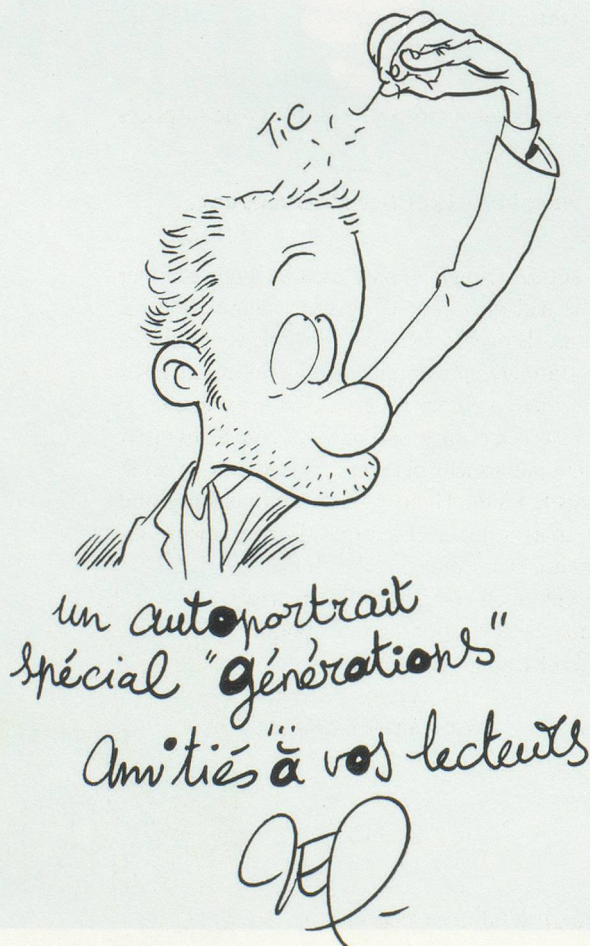 TiC
un autoportrait
spécial "générations"
Amitiés... à vos lecteurs